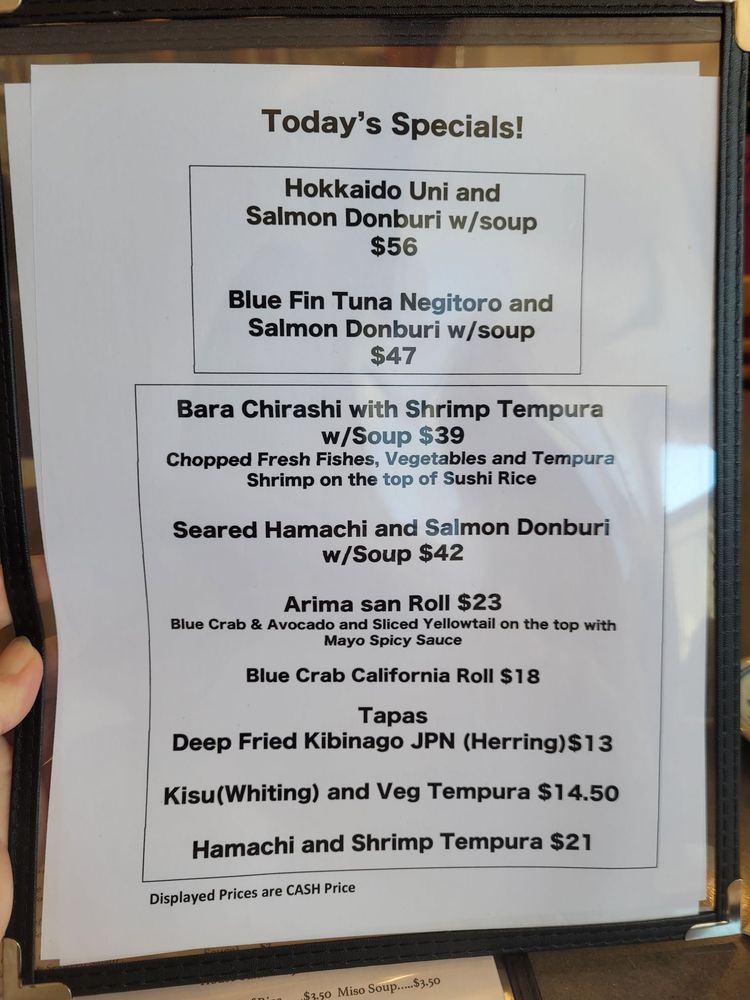 Today's Specials!
Hokkaido Uni and
Salmon Donburi w/soup
$56
Blue Fin Tuna Negitoro and
Salmon Donburi w/soup
$47
Bara Chirashi with Shrimp Tempura
w/Soup $39
Chopped Fresh Fishes, Vegetables and Tempura
Shrimp on the top of Sushi Rice
Seared Hamachi and Salmon Donburi
w/Soup $42
Arima san Roll $23
Blue Crab & Avocado and Sliced Yellowtail on the top with
Mayo Spicy Sauce
Blue Crab California Roll $18
Tapas
Deep Fried Kibinago JPN (Herring)$13
Kisu(Whiting) and Veg Tempura $14.50
Hamachi and Shrimp Tempura $21
Displayed Prices are CASH Price
$3.50 Miso Soup.....$3.50